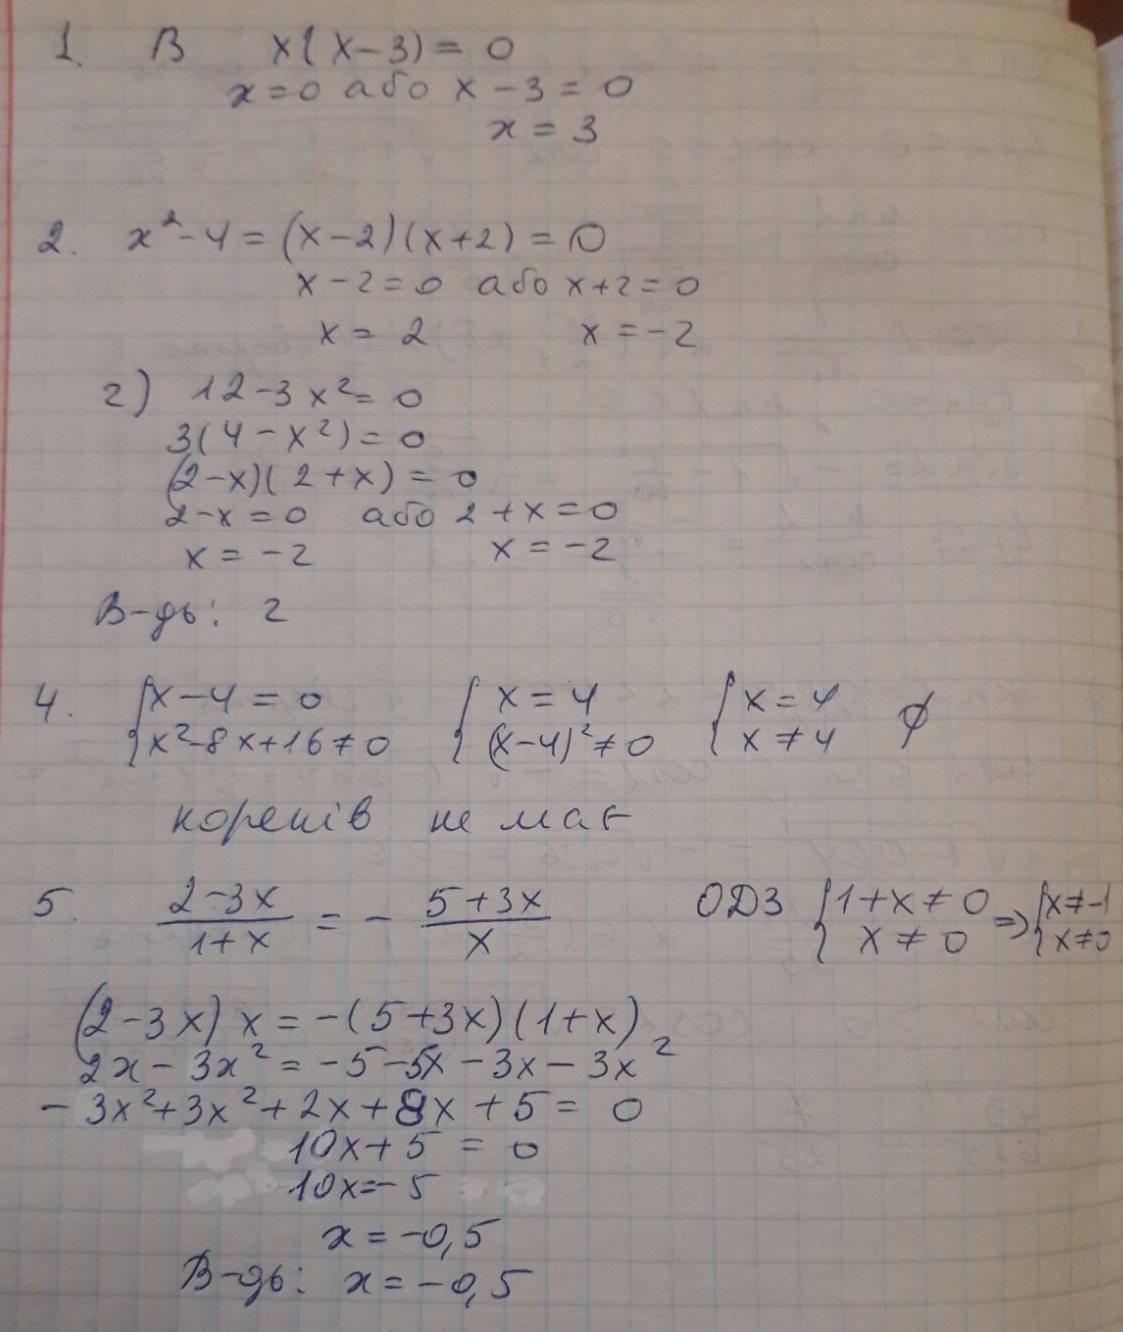 1. В x(x-3)=0
x=0 або x-3=0
x=3
2. x²-4=(x-2)(x+2)=0
x-2=0 або x+2=0
x=2 x=-2
г) 12-3x²=0
3(4-x²)=0
(2-x)(2+x)=0
2-x=0 або 2+x=0
x=-2 x=-2
В-дь: г
4. {x-4=0 {x=4 {x=4 ∅
{x²-8x+16≠0 {(x-4)²≠0 {x≠4
коренів не має
5. (2-3x)/(1+x) = - (5+3x)/x ОДЗ {1+x≠0 x≠0 => {x≠-1 x≠0
(2-3x)x=-(5+3x)(1+x)
2x-3x²=-5-5x-3x-3x²
-3x²+3x²+2x+8x+5=0
10x+5=0
10x=-5
x=-0,5
В-дь: x=-0,5